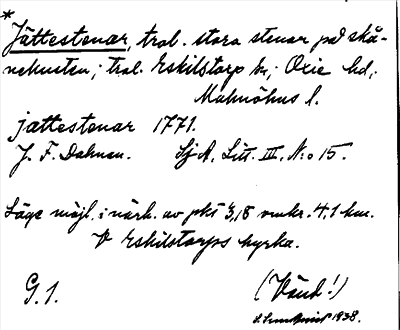 *
Jättestenar, trol. stora stenar på skå-
nekusten; trol. Eskilstorp sn; Oxie hd;
Malmöhus l.
jættestenar 1771.
J. F. Dahman. Sj A, Litt. III, N:o 15.
Läge möjl. i närh. av pkt 3,18 omkr. 4.1 km.
V Eskilstorps kyrka.
G. 1. (Vänd!)
1938.